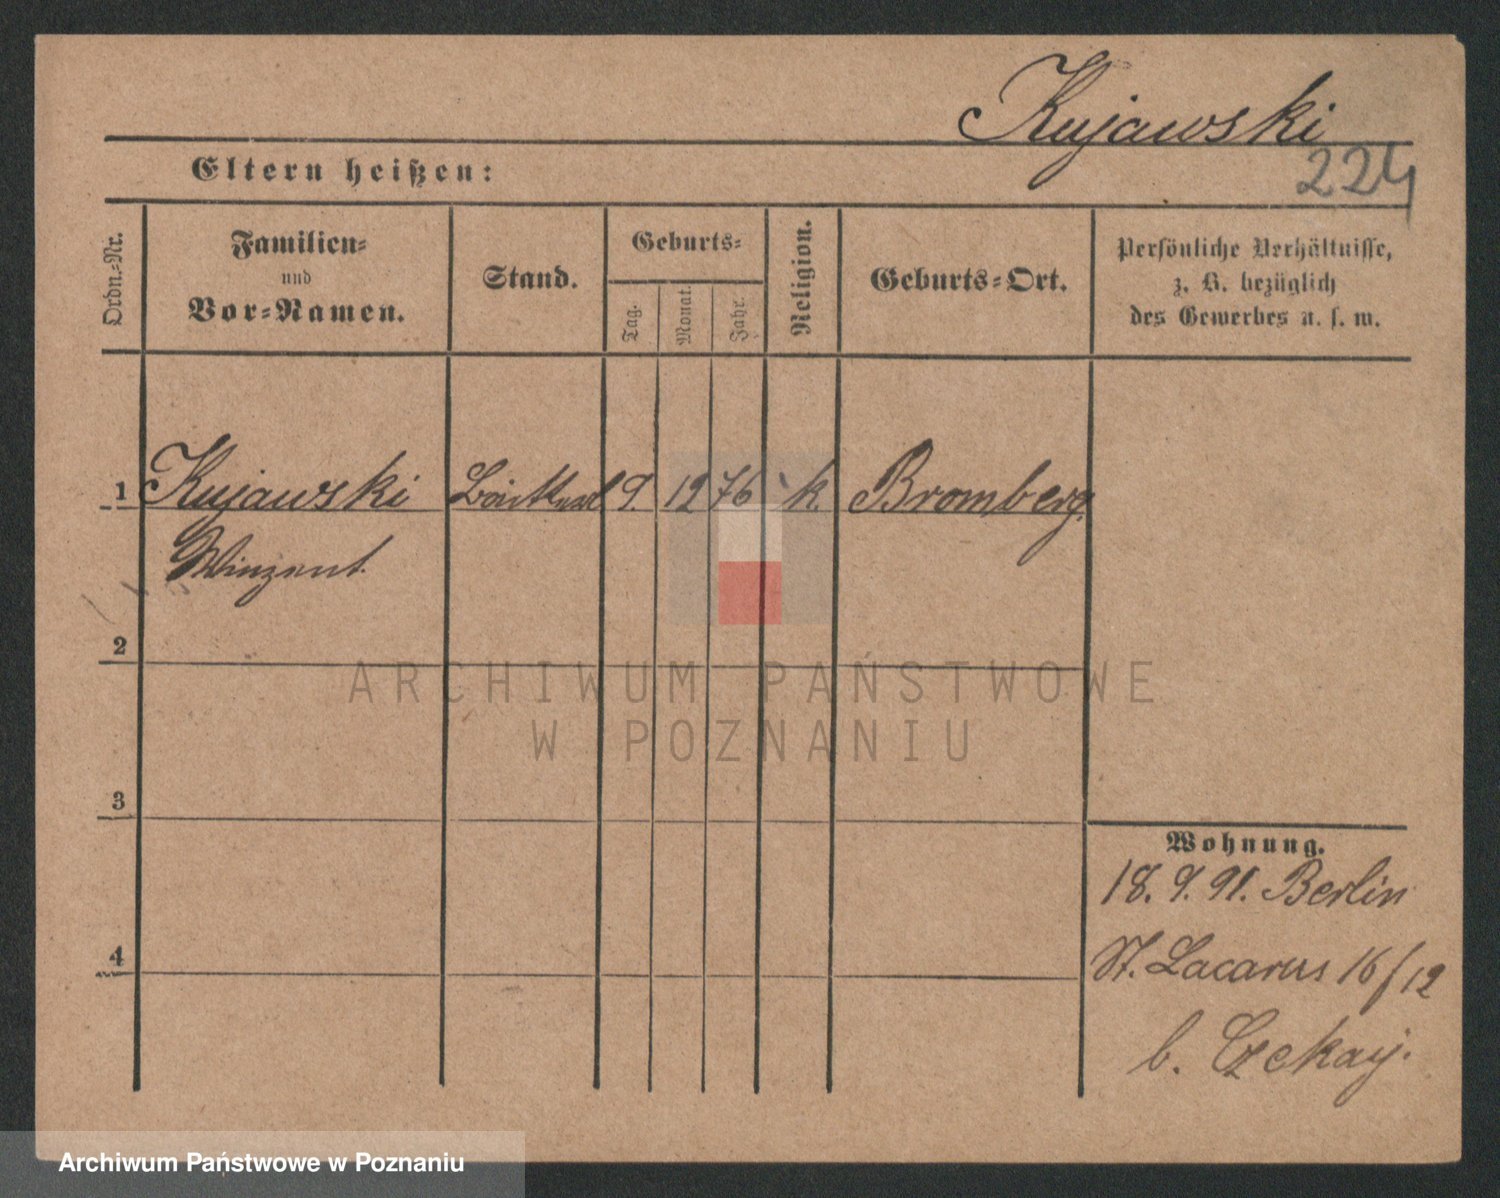 Kujawski
224
Eltern heißen:
Ordn.-Nr.
Familien-
und
Vor-Namen.
Stand.
Geburts-
Tag.
Monat.
Jahr.
Religion.
Geburts-Ort.
Persönliche Verhältnisse,
z. B. bezüglich
des Gewerbes u. s. w.
1 Kujawski 9. 12 76 k. Bromberg.
Winzent.
2
3
4
Wohnung.
18. 9. 91. Berlin
St. Lacarus 16/12
b. Czekay.
ARCHIWUM PAŃSTWOWE
W POZNANIU
Archiwum Państwowe w Poznaniu